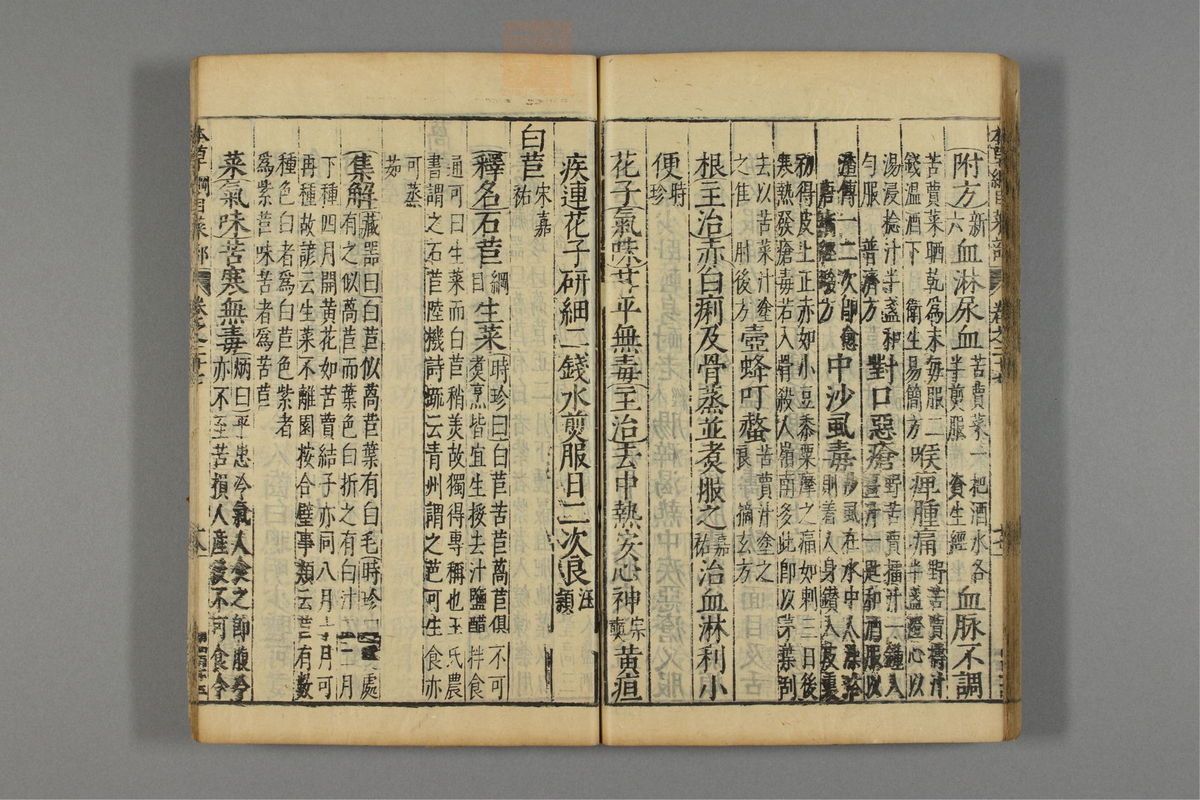 本草綱目菜部 卷之二十七
附方新六血淋尿血苦蕒菜一把酒水各半煎服 資生經血脉不調
苦蕒菜晒乾爲末每服二錢溫酒下 衛生易簡方喉痹腫痛野苦蕒擣汁半盞燈心以
湯浸捻汁半盞和勻服 普濟方對口惡瘡野苦蕒擂汁一鍾入薑汁一匙和酒服以
渣傅一二次即愈 唐瑤經驗方中沙虱毒沙虱在水中人澡浴則着人身鑽入皮裏
初得皮上正赤如小豆黍粟摩之痛如刺三日後寒熱發瘡毒若入骨殺人嶺南多此即以茅葉刮
去以苦菜汁塗之佳 肘後方壺蜂叮螫苦蕒汁塗之良 摘玄方
根主治赤白痢及骨蒸並煑服之嘉祐治血淋利小
便時珍
花子氣味甘平無毒主治去中熱安心神宗奭黃疸
疾連花子研細二錢水煎服日二次良汪穎
白苣宋嘉祐
釋名石苣綱目生菜時珍曰白苣苦苣萵苣俱不可煑烹皆宜生挼去汁鹽醋拌食
通可曰生菜而白苣稍美故獨得專稱也王氏農書謂之石苣陸機詩疏云青州謂之芭可生食亦
可蒸茹
集解藏器曰白苣似萵苣葉有白毛時珍曰處處有之似萵苣而葉色白折之有白汁二月
下種四月開黃花如苦蕒結子亦同八月十月可再種故諺云生菜不離園按合璧事類云苣有數
種色白者爲白苣色紫者爲紫苣味苦者爲苦苣
菜氣味苦寒無毒炳曰平患冷氣人食之即腹冷亦不至苦損人產後不可食令
本草綱目菜部 卷之二十七